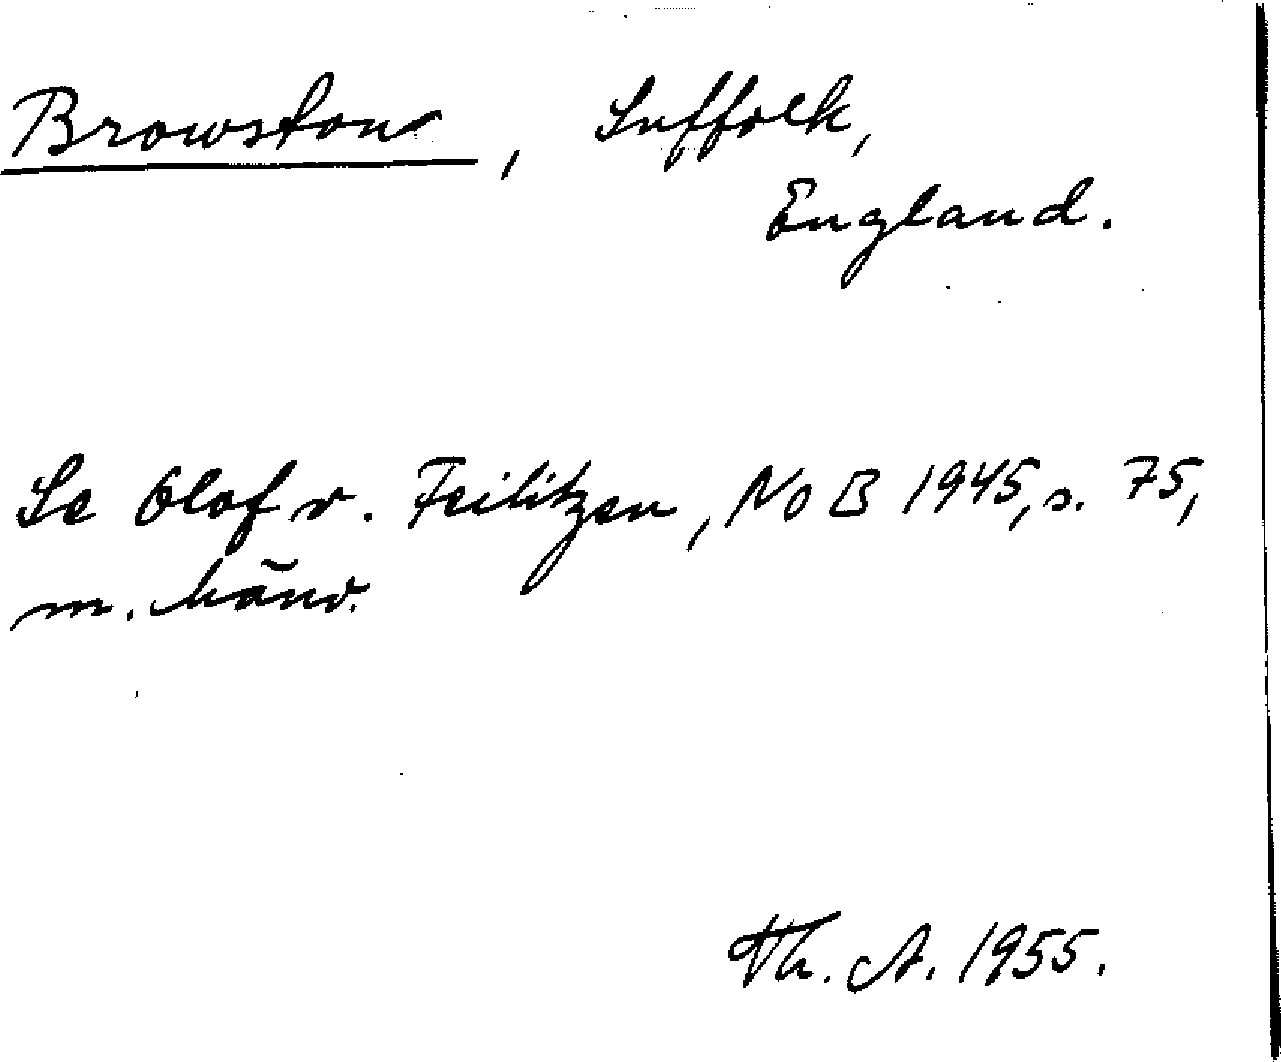 Browston, Suffolk,
England.
Se Olof v. Feilitzen, NoB 1945, s. 75,
m. hänv.
Th. A. 1955.